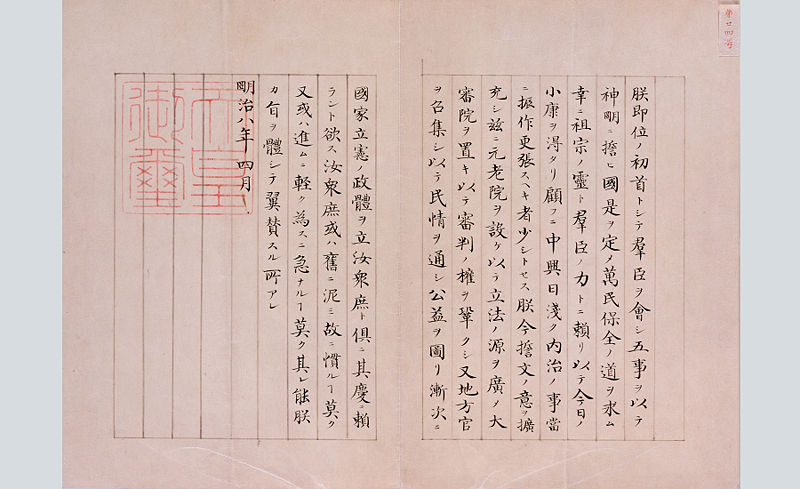 第廿四号
朕即位ノ初首トシテ羣臣ヲ會シ五事ヲ以テ
神明ニ誓ヒ國是ヲ定メ萬民保全ノ道ヲ求ム
幸ニ祖宗ノ靈ト羣臣ノ力トニ賴リ以テ今日ノ
小康ヲ得タリ顧フニ中興日淺ク内治ノ事當
ニ振作更張スヘキ者少シトセス朕今誓文ノ意ヲ擴
充シ茲ニ元老院ヲ設ケ以テ立法ノ源ヲ廣メ大
審院ヲ置キ以テ審判ノ權ヲ鞏クシ又地方官
ヲ召集シ以テ民情ヲ通シ公益ヲ圖リ漸次ニ
國家立憲ノ政體ヲ立汝衆庶ト俱ニ其慶ニ賴
ラント欲ス汝衆庶或ハ舊ニ泥ミ故ニ慣ルヿ莫ク
又或ハ進ムニ輕ク為スニ急ナルヿ莫ク其レ能朕
カ旨ヲ體シテ翼賛スル所アレ
明治八年四月
天皇御璽